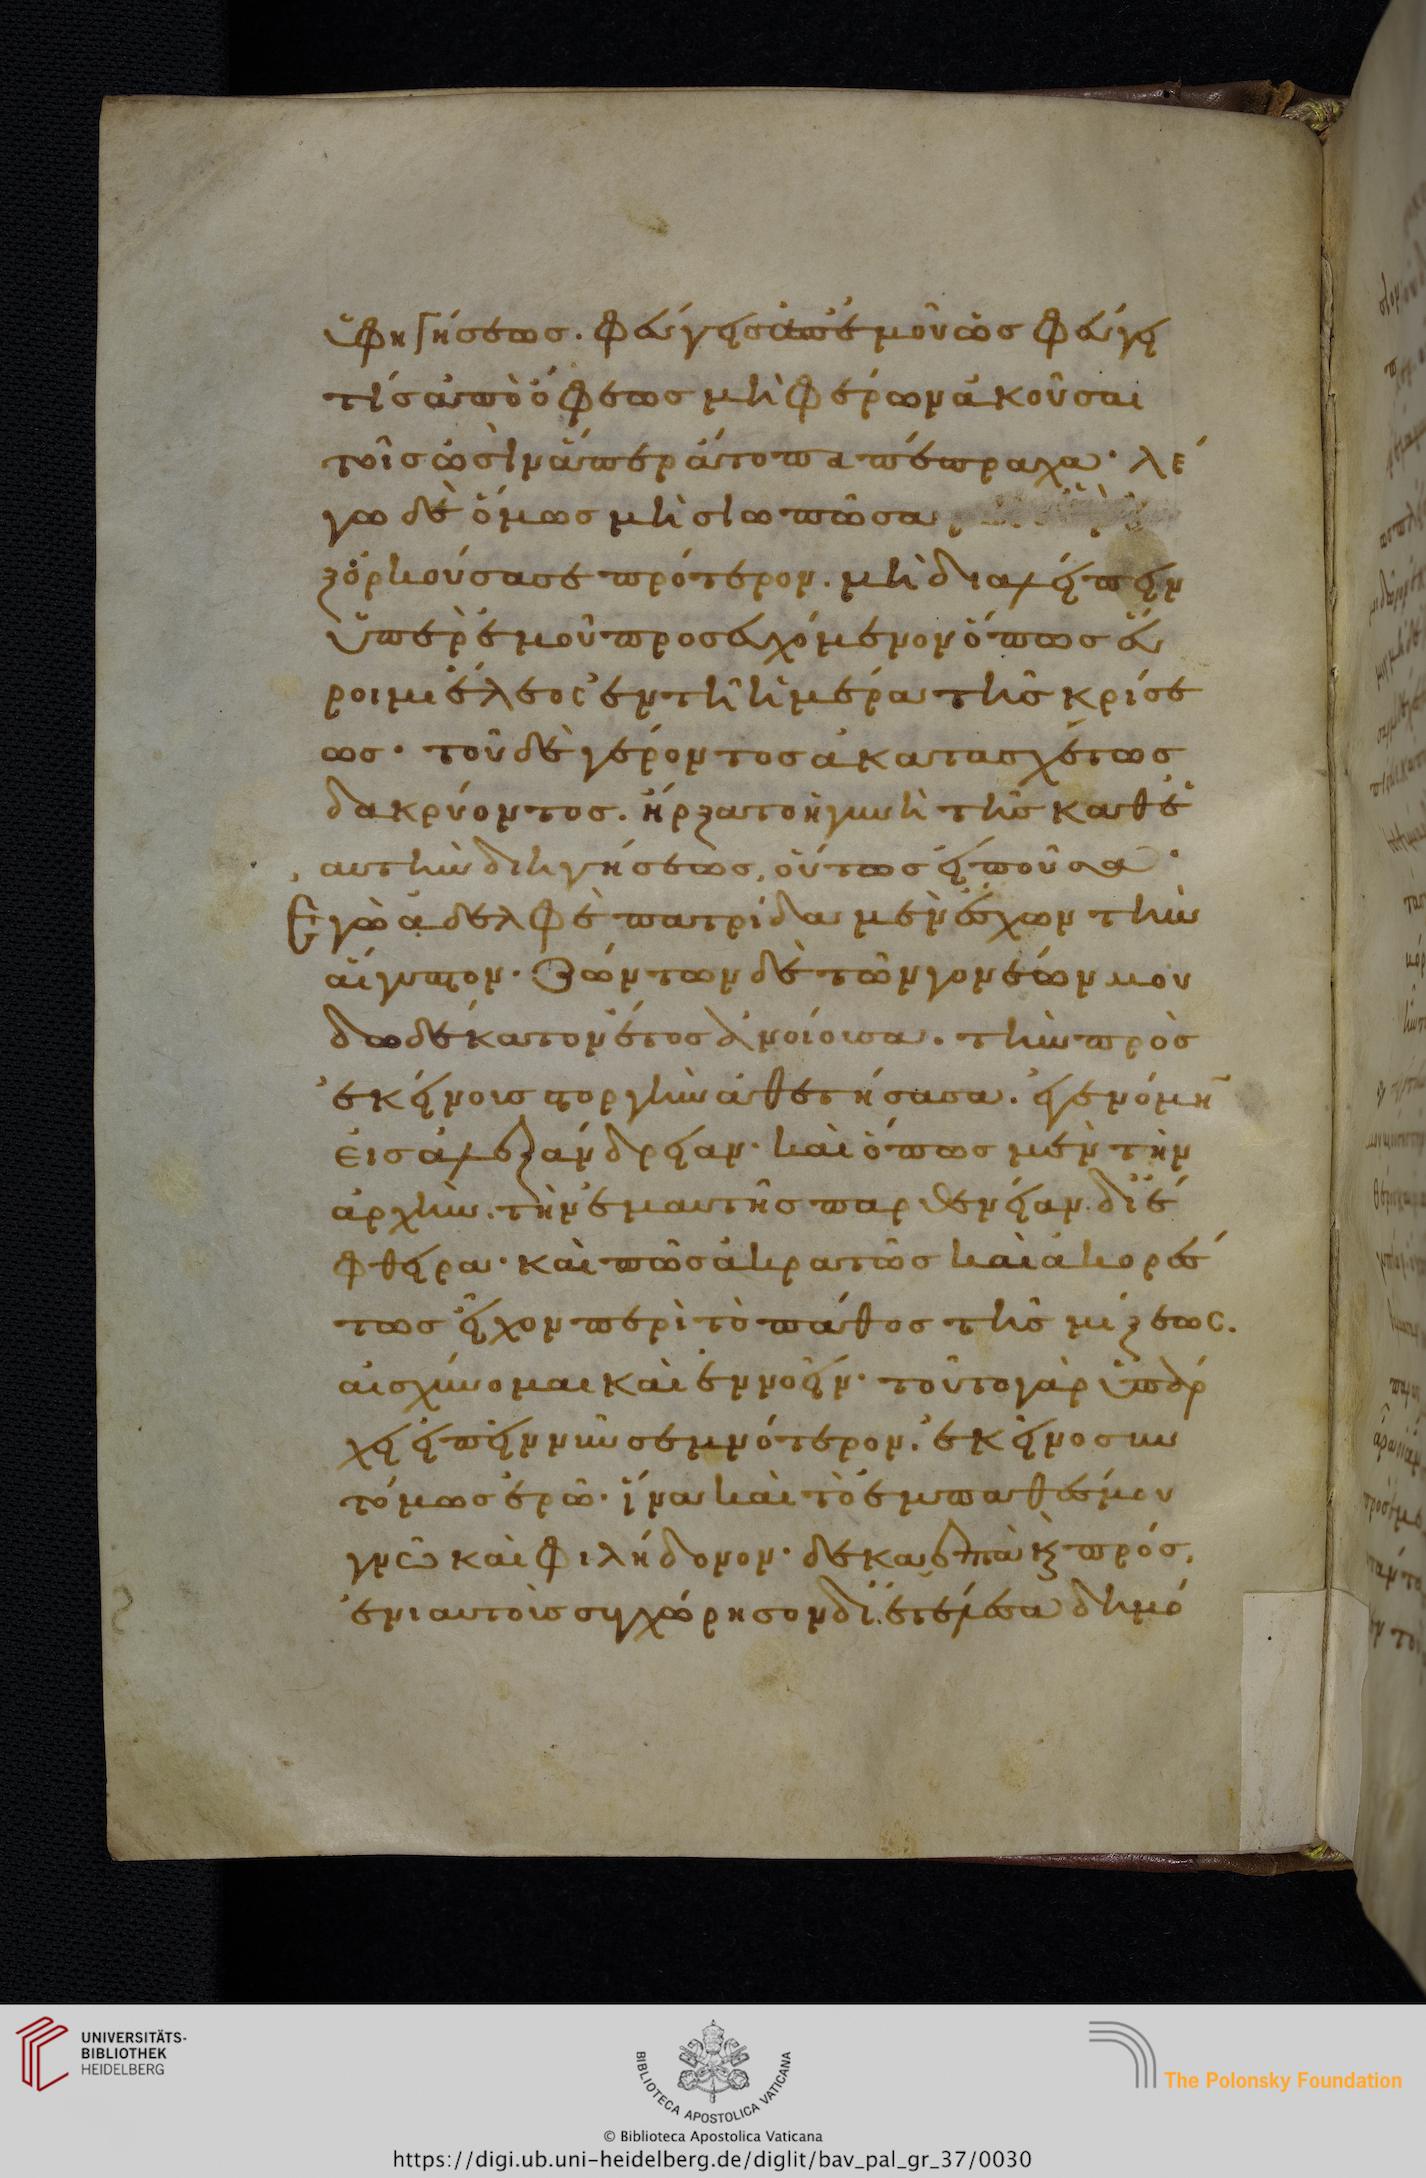 ὑφηγήσεως. φεύγεις ἀπ' ἐμοῦ ὡς φεύγει
τίς ἀπὸ ὄφεως μὴ φέρων ἀκοῦσαι
τοῖς ὠσὶν ἅπερ ἄτοπα πέπραχα· λέ
γω δὲ ὅμως μὴ σιωπῶσα
ξορκοῦσά σε πρότερον. μὴ διαλείπειν
ὑπὲρ ἐμοῦ προσευχόμενον ὅπως εὕ
ροιμι ἔλεος ἐν τῆ ἡμέρα τῆς κρίσε
ως· τοῦ δὲ γέροντος ἀκατασχέτως
δακρύοντος. ἤρξατο ἡ γυνὴ τῆς καθ' ἑ
αυτὴν διηγήσεως, οὕτως εἰποῦσα·
Ἐγὼ ἀδελφὲ πατρίδα μὲν ἔσχον τὴν
αἴγυπτον· ζώντων δὲ τῶν γονέων μου
δωδέκατον ἔτος ἀνύουσα. τὴν πρὸς
ἐκείνους στοργὴν ἀθετήσασα. γενόμην
εἰς ἀλεξάνδρειαν· καὶ ὅπως μὲν τὴν
ἀρχὴν. τὴν ἐμαυτῆς παρθενείαν διέ
φθειρα· καὶ πῶς ἀκρατῶς καὶ ἀκορέσ
τως εἶχον περὶ τὸ πάθος τῆς μίξεως.
αἰσχύνομαι καὶ ἐννοεῖν· τοῦτο γὰρ ὑπάρ
χει εἰπεῖν νῦν σεμνότερον. ἐκεῖνο συν
τόμως ἐρῶ· ἵνα καὶ τὸ ἐμπαθές μου
γνῶς καὶ φιλήδονον· δεκαεπτὰ καὶ πρός,
ἐνιαυτοὺς συγχώρησον διετέλεσα δημό
UNIVERSITÄTS-
BIBLIOTHEK
HEIDELBERG
BIBLIOTECA APOSTOLICA VATICANA
The Polonsky Foundation
© Biblioteca Apostolica Vaticana
https://digi.ub.uni-heidelberg.de/diglit/bav_pal_gr_37/0030